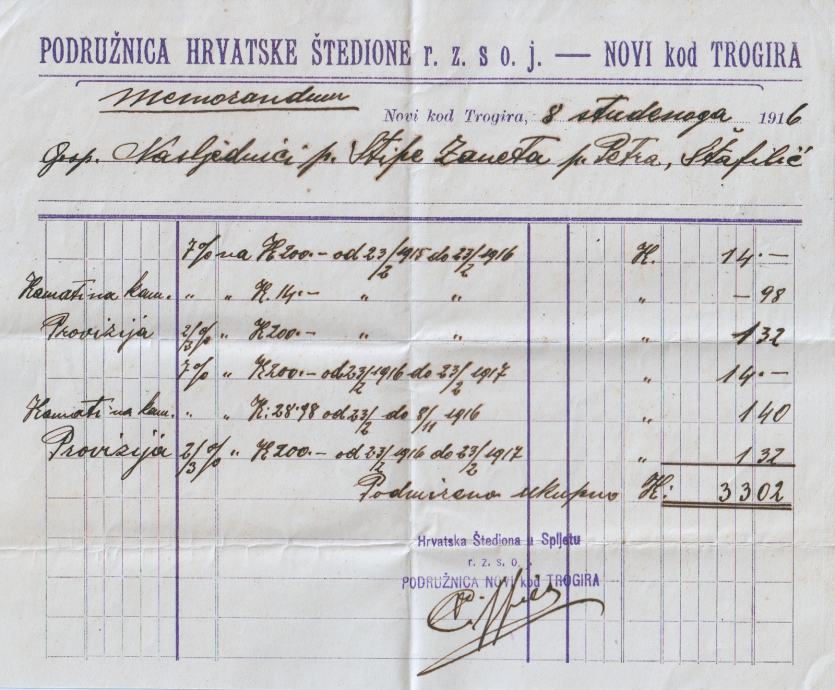 PODRUŽNICA HRVATSKE ŠTEDIONE r. z. s o. j. — NOVI kod TROGIRA
Memorandum
Novi kod Trogira, 8 studenoga 1916
Gosp. Nasljednici p. Stipe Zaneta p. Petra, Štafilić
7% na K 200.— od 23/2 1915 do 23/2 1916 K. 14.—
Kamati na kam. „ „ K. 14.— „ „ „ — 98
Provizija 2/3 % „ K 200.— „ „ „ 1 32
7% „ K 200.— od 23/2 1916 do 23/2 1917 „ 14.—
Kamati na kam. „ „ K: 28.98 od 23/2 do 8/11 1916 „ 1 40
Provizija 2/3 % „ K 200.— od 23/2 1916 do 23/2 1917 „ 1 32
Podmireno ukupno K: 33 02
Hrvatska Štediona u Spljetu
r. z. s o.
PODRUŽNICA NOVI kod TROGIRA